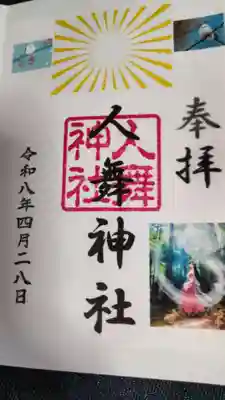 奉拝
人舞神社
人舞
神社
令和八年四月二八日